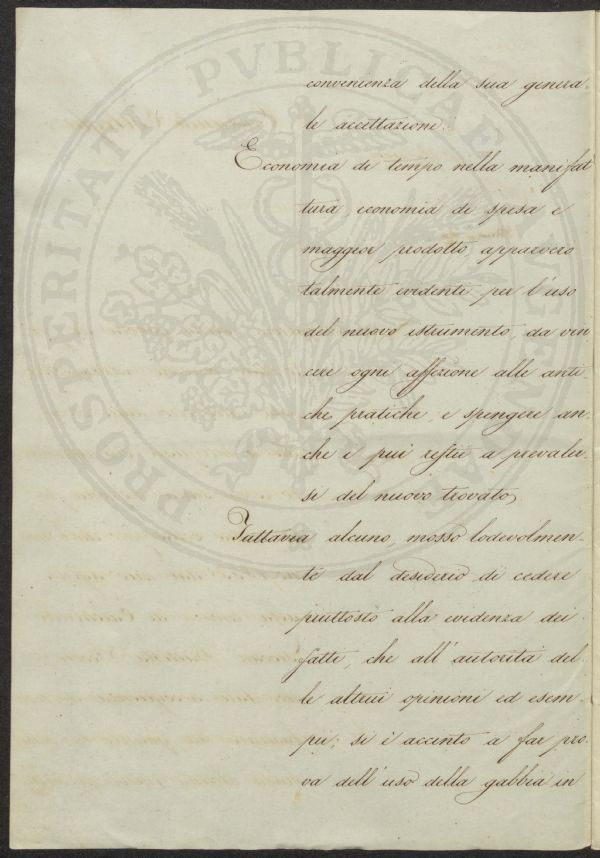 convenienza della sua genera-
le accettazione.
Economia di tempo nella manifat
tura, economia di spesa e
maggior prodotto, apparvero
talmente evidenti per l'uso
del nuovo istrumento, da vin
cere ogni affezione alle anti-
che pratiche, e spingere an-
che i più restii a prevaler-
si del nuovo trovato,
Tuttavia alcuno, mosso lodevolmen-
te dal desiderio di cedere
piuttosto alla evidenza dei
fatti, che all'autorità del
le altrui opinioni ed esem-
pii; si è accinto a far pro-
va dell'uso della gabbia in
PROSPERITATI PVBLICAE AVGENDAE